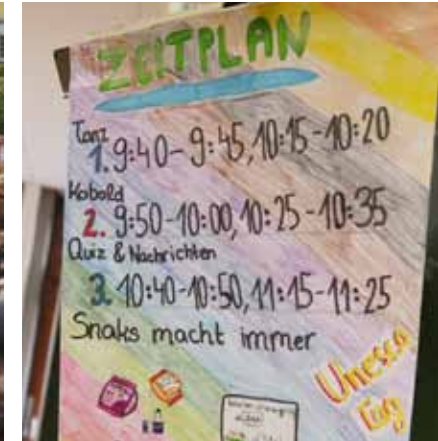 ZEITPLAN
Tanz
1. 9:40-9:45, 10:15-10:20
Kobold
2. 9:50-10:00, 10:25-10:35
Quiz & Nachrichten
3. 10:40-10:50, 11:15-11:25
Snaks macht immer
Unesco
Tag